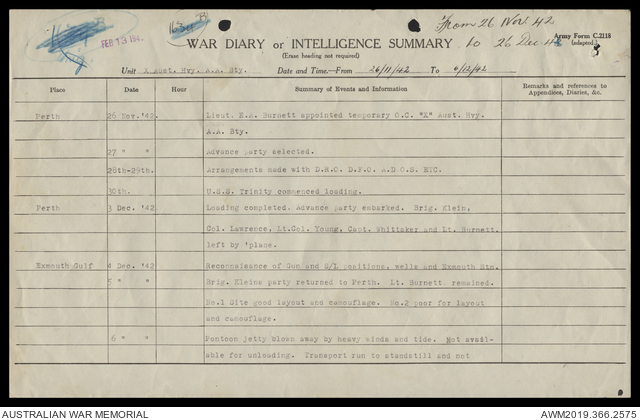 163/1 B
FEB 13 194
From 26 Nov 42
to 26 Dec 42
WAR DIARY or INTELLIGENCE SUMMARY
Army Form C.2118
(adapted)
(Erase heading not required)
Unit X Aust. Hvy. A.A. Bty.
Date and Time.—From 26/11/42 To 6/12/42
Place Date Hour Summary of Events and Information Remarks and references to Appendices, Diaries, &c.
Perth 26 Nov. '42. Lieut. E.A. Burnett appointed temporary O.C. "X" Aust. Hvy.
A.A. Bty.
27 " " Advance party selected.
28th-29th. Arrangements made with D.R.O. D.F.O. A.D.O.S. ETC.
30th. U.S.S. Trinity commenced loading.
Perth 3 Dec. '42 Loading completed. Advance party embarked. Brig. Klein,
Col. Lawrence, Lt.Col. Young, Capt. Whittaker and Lt. Burnett
left by 'plane.
Exmouth Gulf 4 Dec. '42 Reconnaisance of Gun and S/L positions, wells and Exmouth Stn.
5 " " Brig. Kleins party returned to Perth. Lt. Burnett remained.
No.1 Site good layout and camouflage. No.2 poor for layout
and camouflage.
6 " " Pontoon jetty blown away by heavy winds and tide. Not avail-
able for unloading. Transport run to standstill and not
AUSTRALIAN WAR MEMORIAL
AWM2019.366.2575